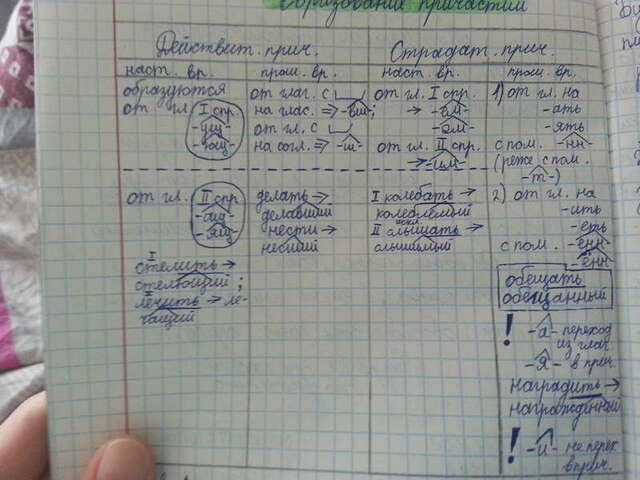 Образование причастий
Действит. прич.
Страдат. прич.
наст. вр.
образуются
от гл. I спр.
-ущ-
-ющ-
от гл. II спр.
-ащ-
-ящ-
I
стелить →
стелющий;
II
лечить → ле-
чащий
прош. вр.
от глаг. с
на глас. ⇒ -вш-;
от гл. с
на согл. ⇒ -ш-
делать →
делавший
нести →
нёсший
наст. вр.
от гл. I спр.
→ -ем-
-ом-
от гл. II спр.
→ -им-
I колебать →
колеблемый
искл.
II слышать →
слышимый
прош. вр.
1) от гл. на
-ать
-ять
с пом. -нн-
(реже с пом.
-т-)
2) от гл. на
-ить
-еть
с пом. -енн-
-ённ-
обещать
обещанный
! -а- переход
из глаг.
-я- в прич.
наградить →
награждённый
! -и- не перех.
в прич.